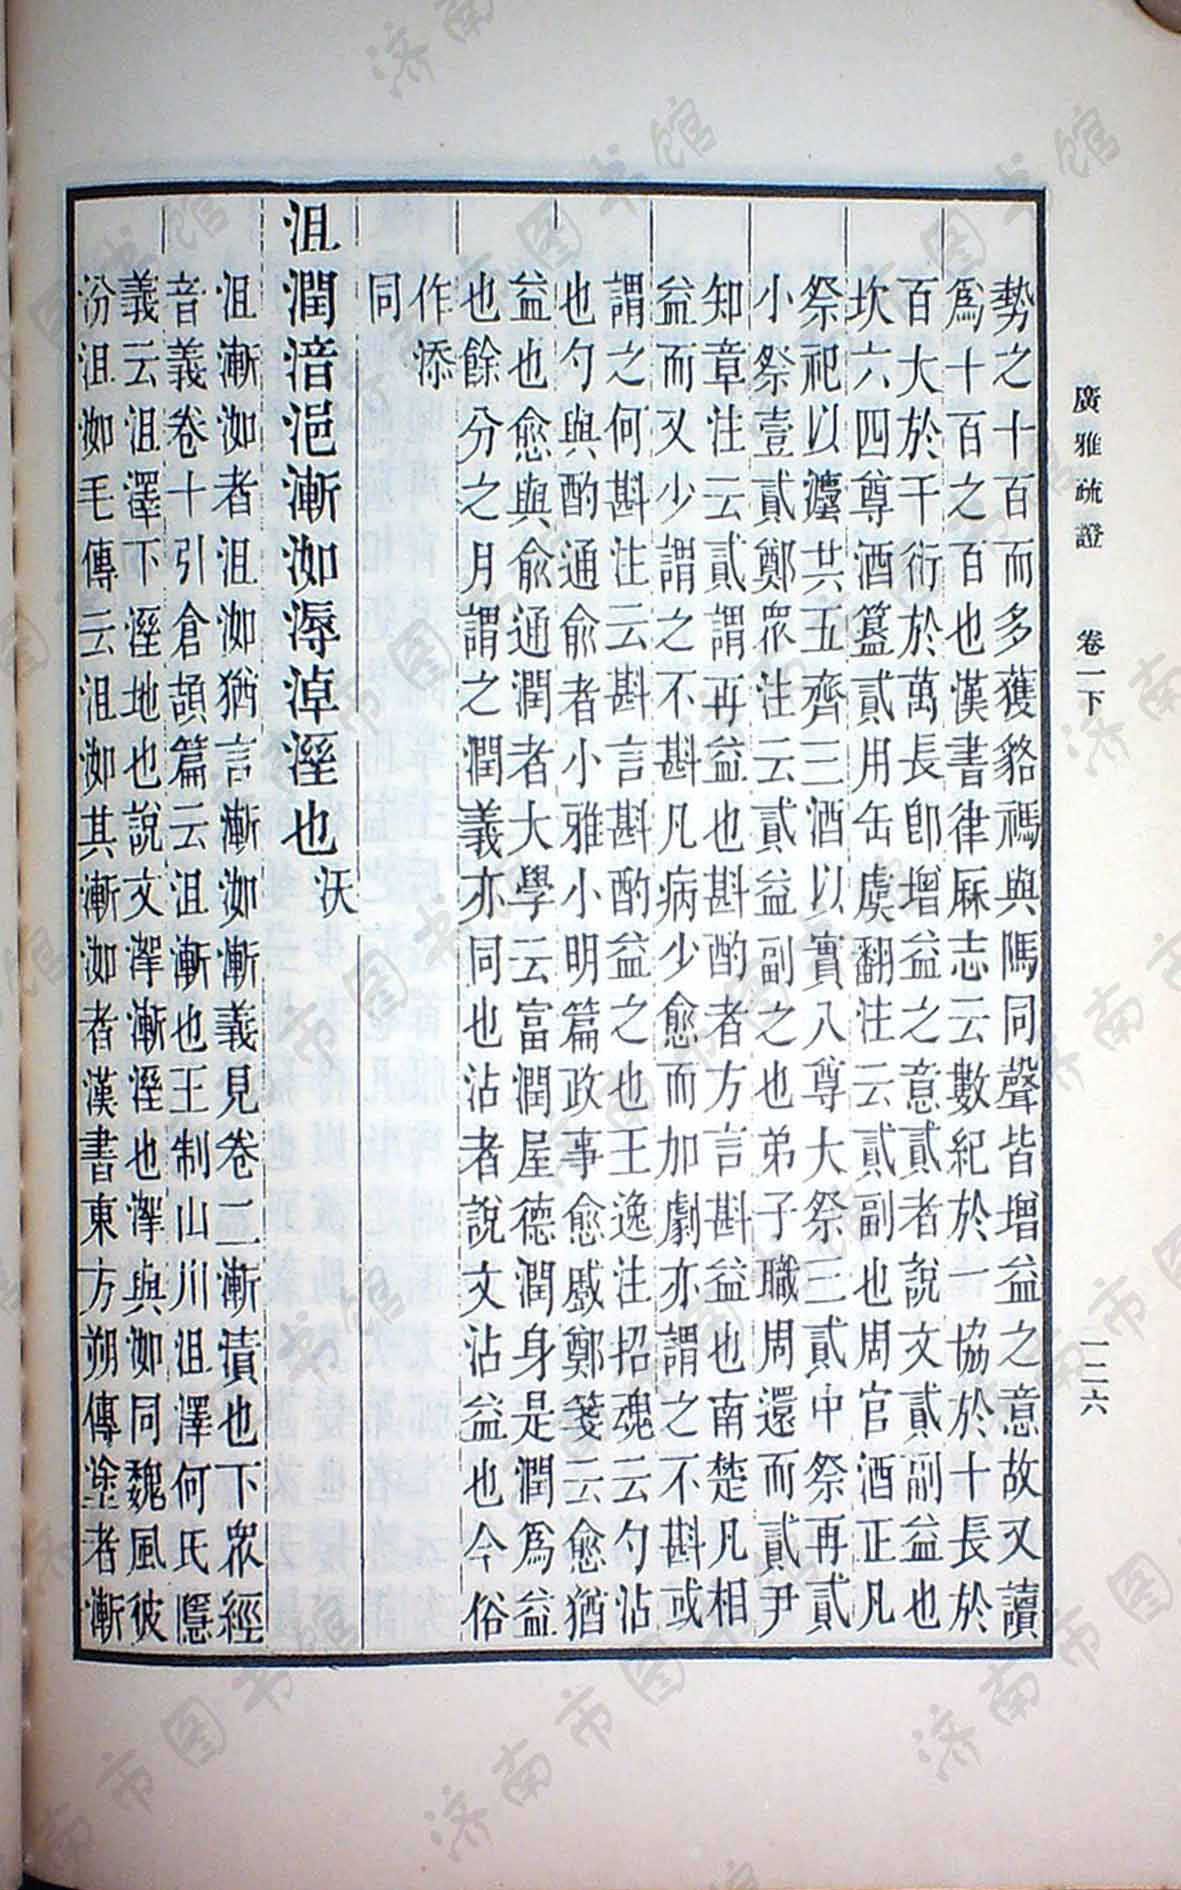 廣雅疏證 卷一下 一二六
勢之十百而多獲貉禡與隅同聲皆增益之意故又讀
爲十百之百也漢書律厤志云數紀於一協於十長於
百大於千衍於萬長卽增益之意貳者說文貳副益也
坎六四尊酒簋貳用缶虞翻注云貳副也周官酒正凡
祭祀以灋共五齊三酒以實八尊大祭三貳中祭再貳
小祭壹貳鄭眾注云貳益副之也弟子職周還而貳尹
知章注云貳謂再益也斟酌者方言斟益也南楚凡相
益而又少謂之不斟凡病少愈而加劇亦謂之不斟或
謂之何斟注云斟言斟酌益之也王逸注招魂云勺沾
也勺與酌通俞者小雅小明篇政事愈戚鄭箋云愈猶
益也愈與俞通潤者大學云富潤屋德潤身是潤爲益
也餘分之月謂之潤義亦同也沾者說文沾益也今俗
作添
同
沮潤湆浥漸洳溽淖溼也 沃
沮漸洳者沮洳猶言漸洳漸義見卷二漸漬也下眾經
音義卷十引倉頡篇云沮漸也王制山川沮澤何氏隱
義云沮澤下溼地也說文澤漸溼也澤與洳同魏風彼
汾沮洳毛傳云沮洳其漸洳者漢書東方朔傳塗者漸